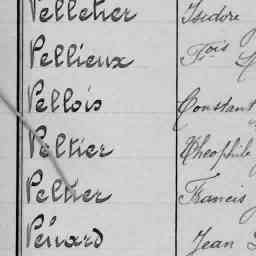 Pelletier Isidore
Pellieux Fois
Pellois Constant
Peltier Théophile
Peltier Francis
Pénard Jean